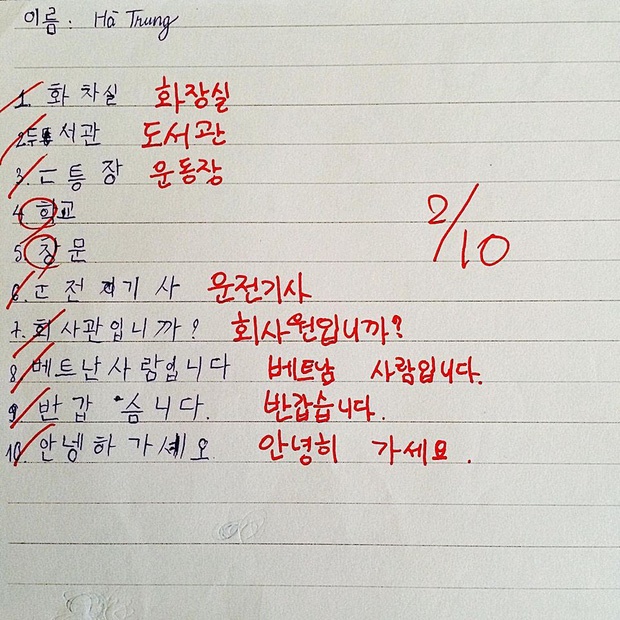 이름: Hà Trung
1. 화 차실 화장실
2. 서관 도서관
3. 등 장 운동장
2/10
4. 학교
5. 창문
6. 전 기 사 운전기사
7. 회 사관입니까? 회사원입니까?
8. 베트난사람입니다 베트남 사람입니다.
9. 반갑 습니다. 반갑습니다.
10. 안녕하 가세오 안녕히 가세요.